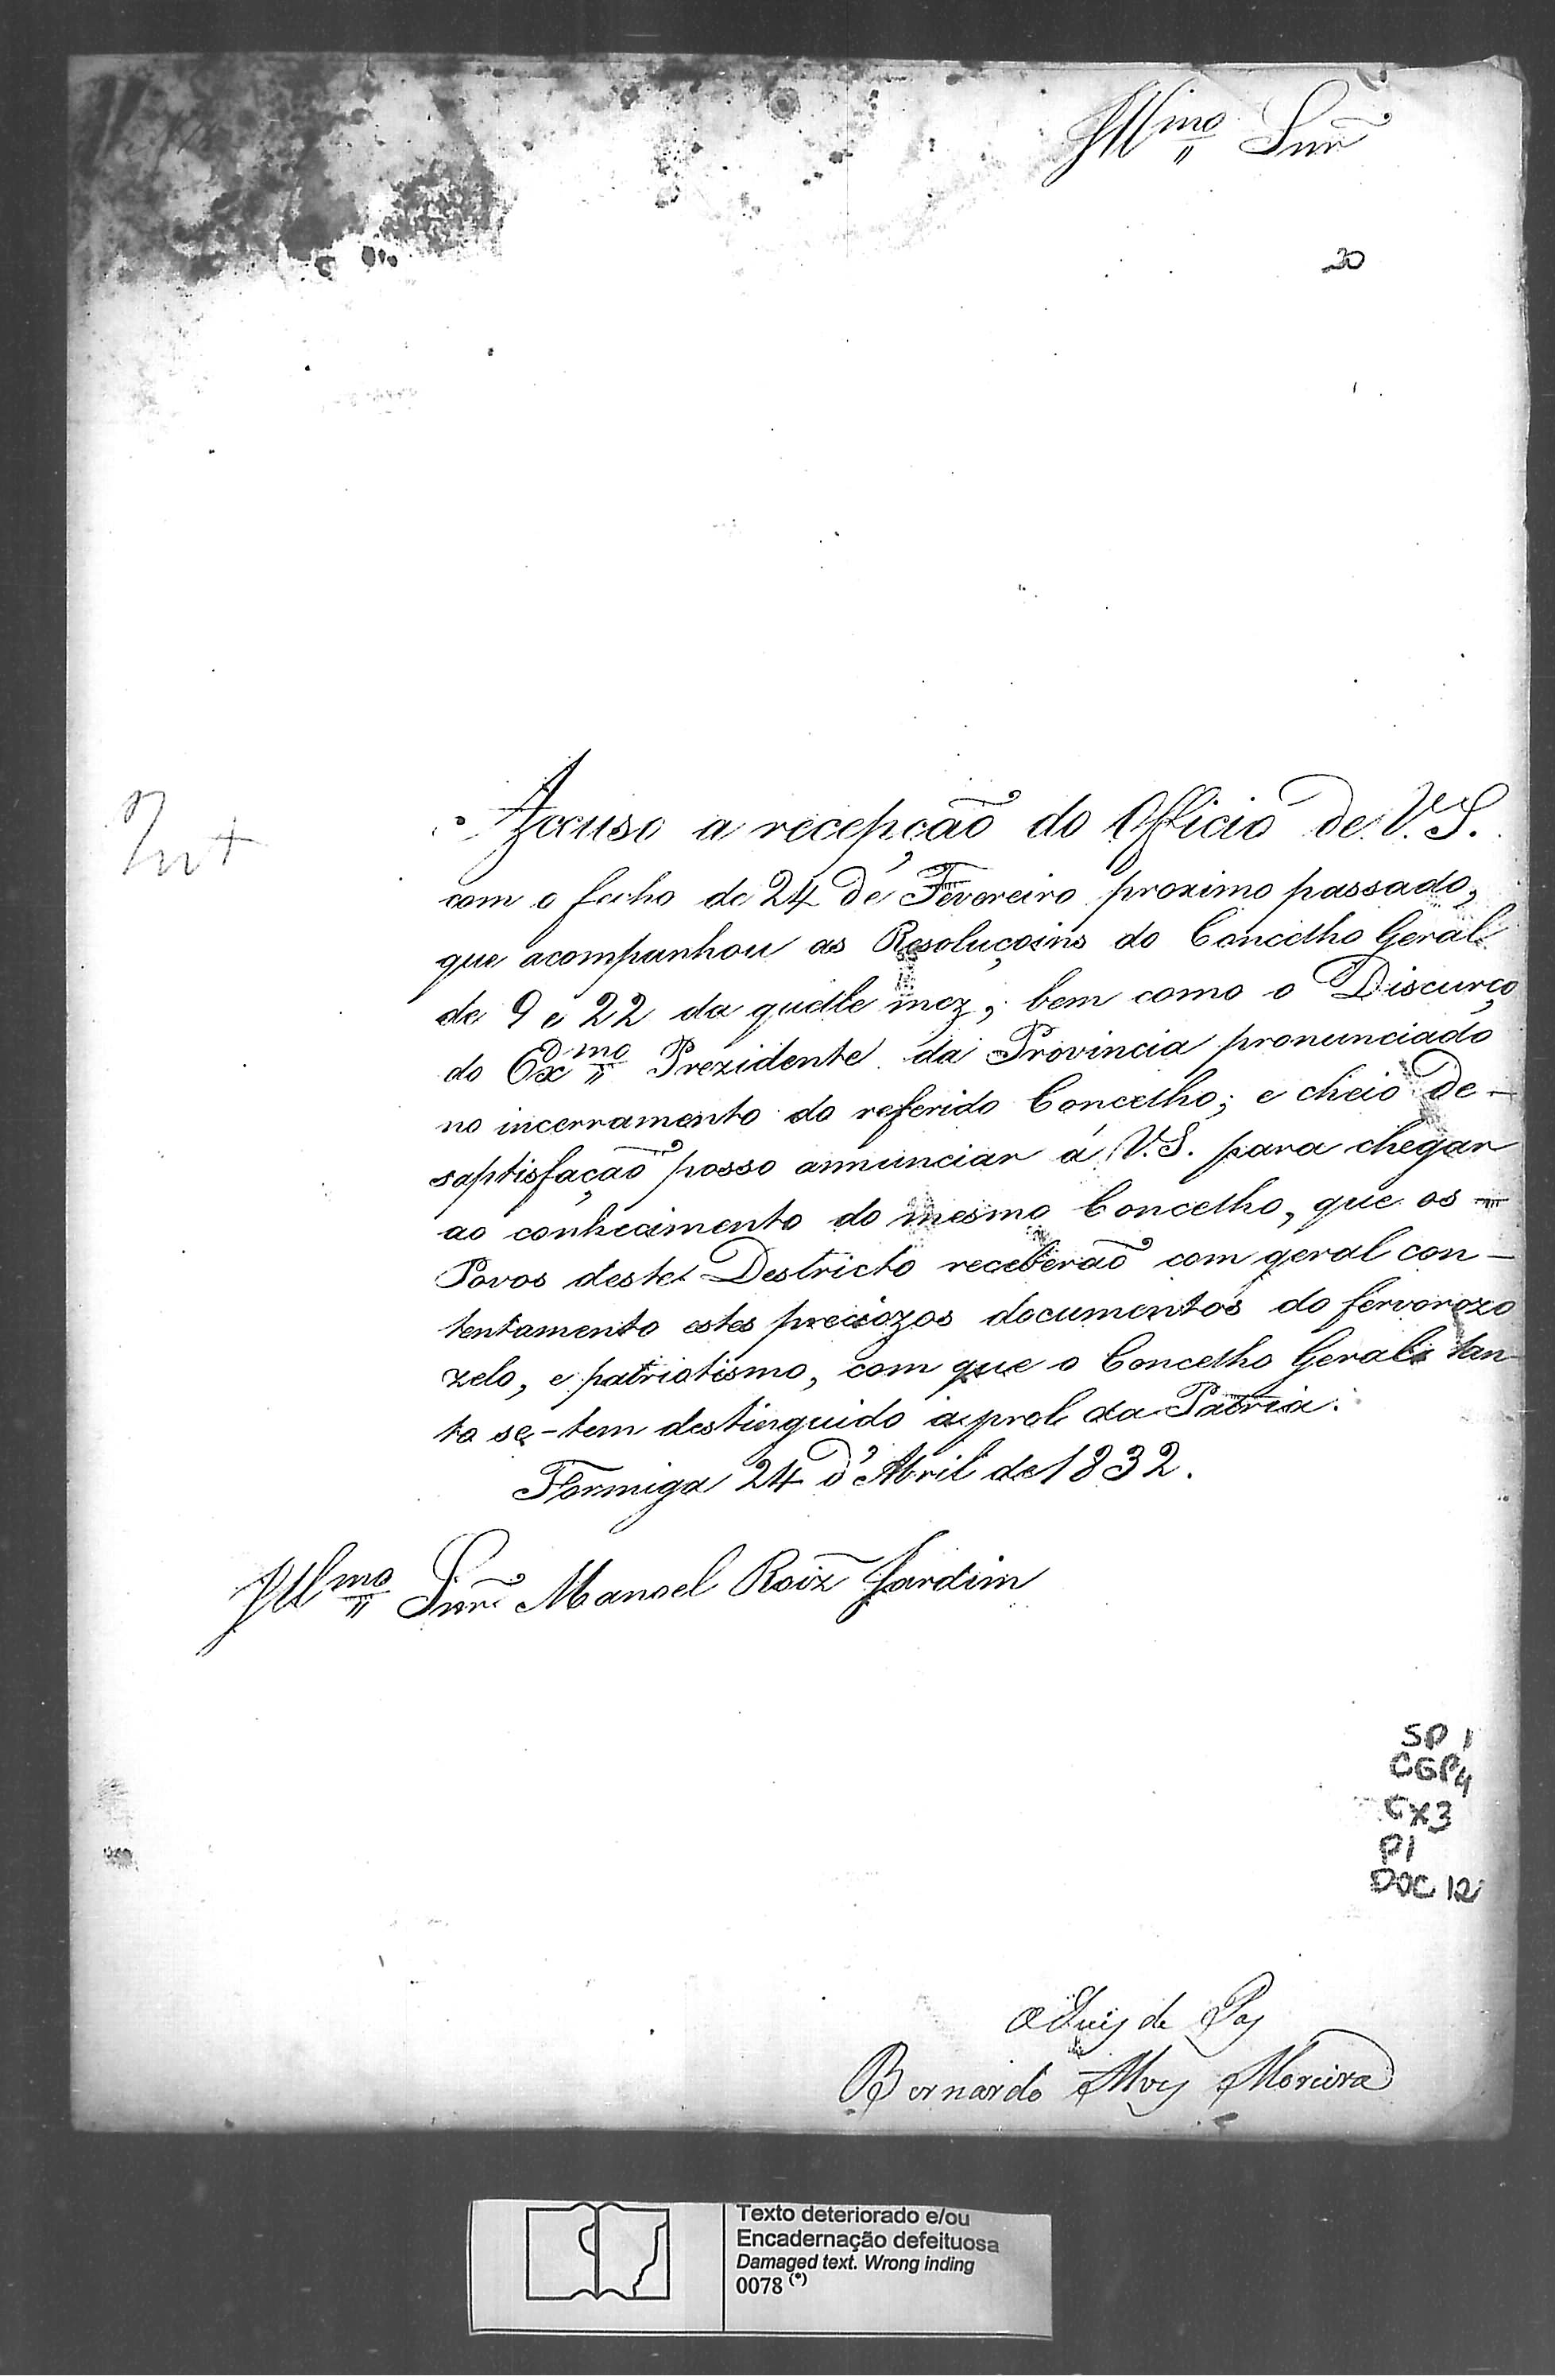 Illmo Snr
20
Accuso a recepção do Officio de V. S.
com o fecho de 24 de Fevereiro proximo passado,
que acompanhou as Resoluçoins do Concelho Geral
de 9 e 22 da quelle mez, bem como o Discurço
do Exmo Prezidente da Provincia pronunciado
no incerramento do referido Concelho; e cheio de-
saptisfação posso annunciar á V. S. para chegar
ao conhecimento do mesmo Concelho, que os
Povos deste Destricto receberão com geral con-
tentamento estes preciozos documentos do fervorozo
zelo, e patriotismo, com que o Concelho Geral tan-
to se-tem destinguido a prol da Patria.
Formiga 24 d'Abril de 1832.
Illmo Snr Manoel Roiz Jardim
SP 1
CGP4
CX3
P1
DOC 12
O Juiz de Paz
Bernardo Alvz Moreira
Texto deteriorado e/ou
Encadernação defeituosa
Damaged text. Wrong inding
0078 (*)